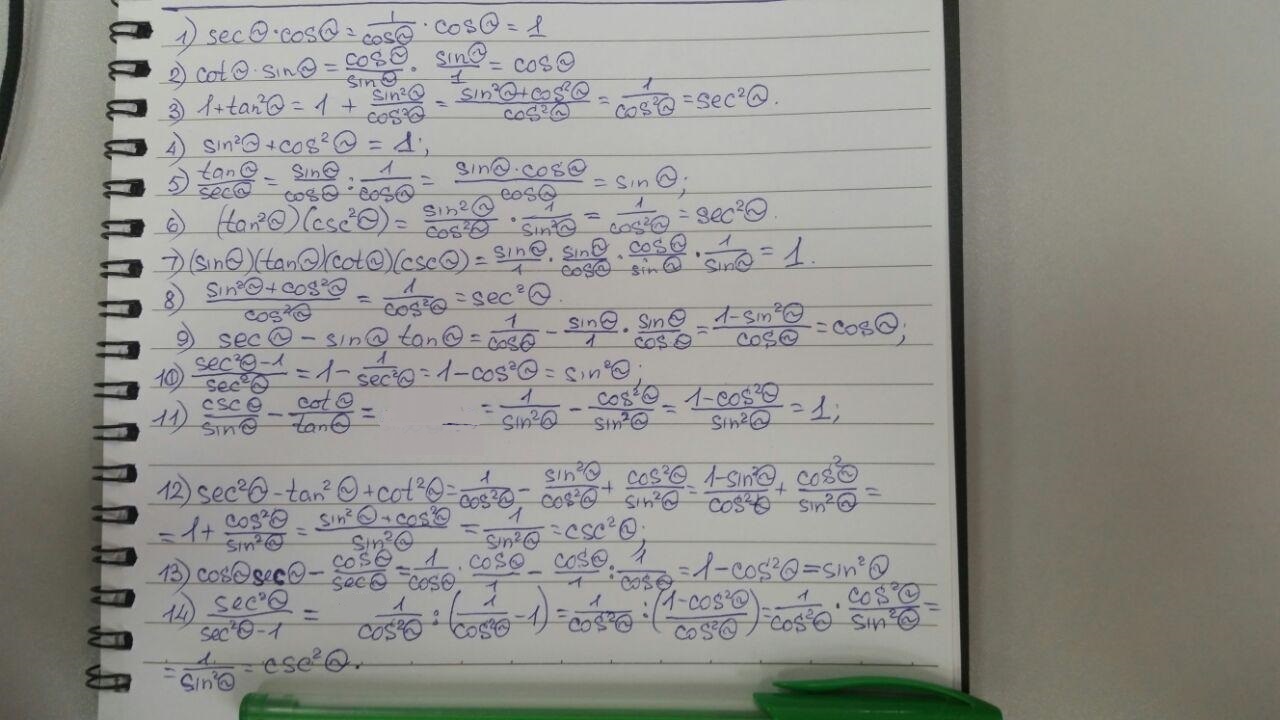 1) secΘ·cosΘ = 1/cosΘ · cosΘ = 1
2) cotΘ·sinΘ = cosΘ/sinΘ · sinΘ/1 = cosΘ
3) 1+tan²Θ = 1 + sin²Θ/cos²Θ = (sin²Θ+cos²Θ)/cos²Θ = 1/cos²Θ = sec²Θ.
4) sin²Θ + cos²Θ = 1;
5) tanΘ/secΘ = sinΘ/cosΘ : 1/cosΘ = (sinΘ·cosΘ)/cosΘ = sinΘ;
6) (tan²Θ)(csc²Θ) = sin²Θ/cos²Θ · 1/sin²Θ = 1/cos²Θ = sec²Θ.
7) (sinΘ)(tanΘ)(cotΘ)(cscΘ) = sinΘ/1 · sinΘ/cosΘ · cosΘ/sinΘ · 1/sinΘ = 1.
8) (sin²Θ+cos²Θ)/cos²Θ = 1/cos²Θ = sec²Θ.
9) secΘ − sinΘ tanΘ = 1/cosΘ − sinΘ/1 · sinΘ/cosΘ = (1−sin²Θ)/cosΘ = cosΘ;
10) (sec²Θ−1)/sec²Θ = 1 − 1/sec²Θ = 1−cos²Θ = sin²Θ;
11) cscΘ/sinΘ − cotΘ/tanΘ = = 1/sin²Θ − cos²Θ/sin²Θ = (1−cos²Θ)/sin²Θ = 1;
12) sec²Θ−tan²Θ+cot²Θ = 1/cos²Θ − sin²Θ/cos²Θ + cos²Θ/sin²Θ = (1−sin²Θ)/cos²Θ + cos²Θ/sin²Θ =
= 1 + cos²Θ/sin²Θ = (sin²Θ+cos²Θ)/sin²Θ = 1/sin²Θ = csc²Θ;
13) cosΘ secΘ − cosΘ/secΘ = 1/cosΘ · cosΘ/1 − cosΘ/1 : 1/cosΘ = 1−cos²Θ = sin²Θ
14) sec²Θ/(sec²Θ−1) = 1/cos²Θ : (1/cos²Θ − 1) = 1/cos²Θ : ((1−cos²Θ)/cos²Θ) = 1/cos²Θ · cos²Θ/sin²Θ =
= 1/sin²Θ = csc²Θ.